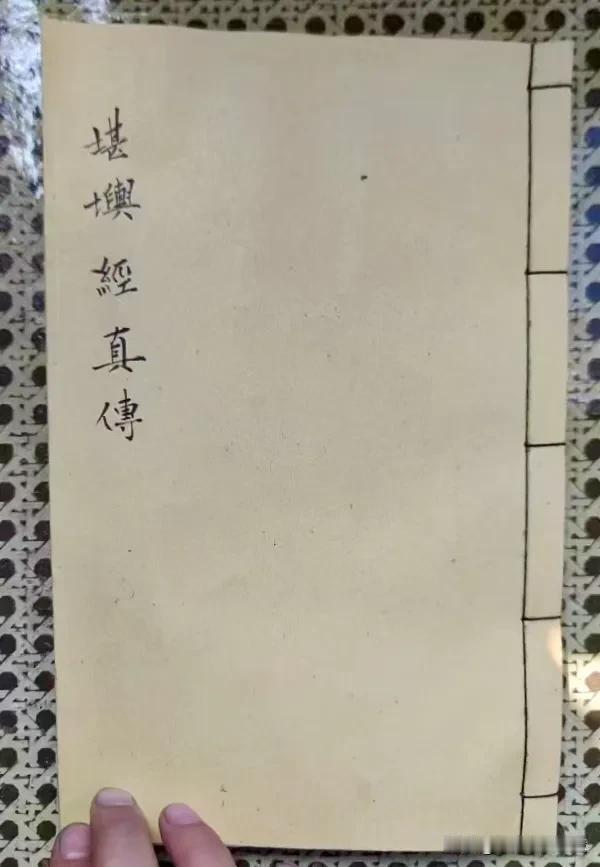 堪輿經真傳